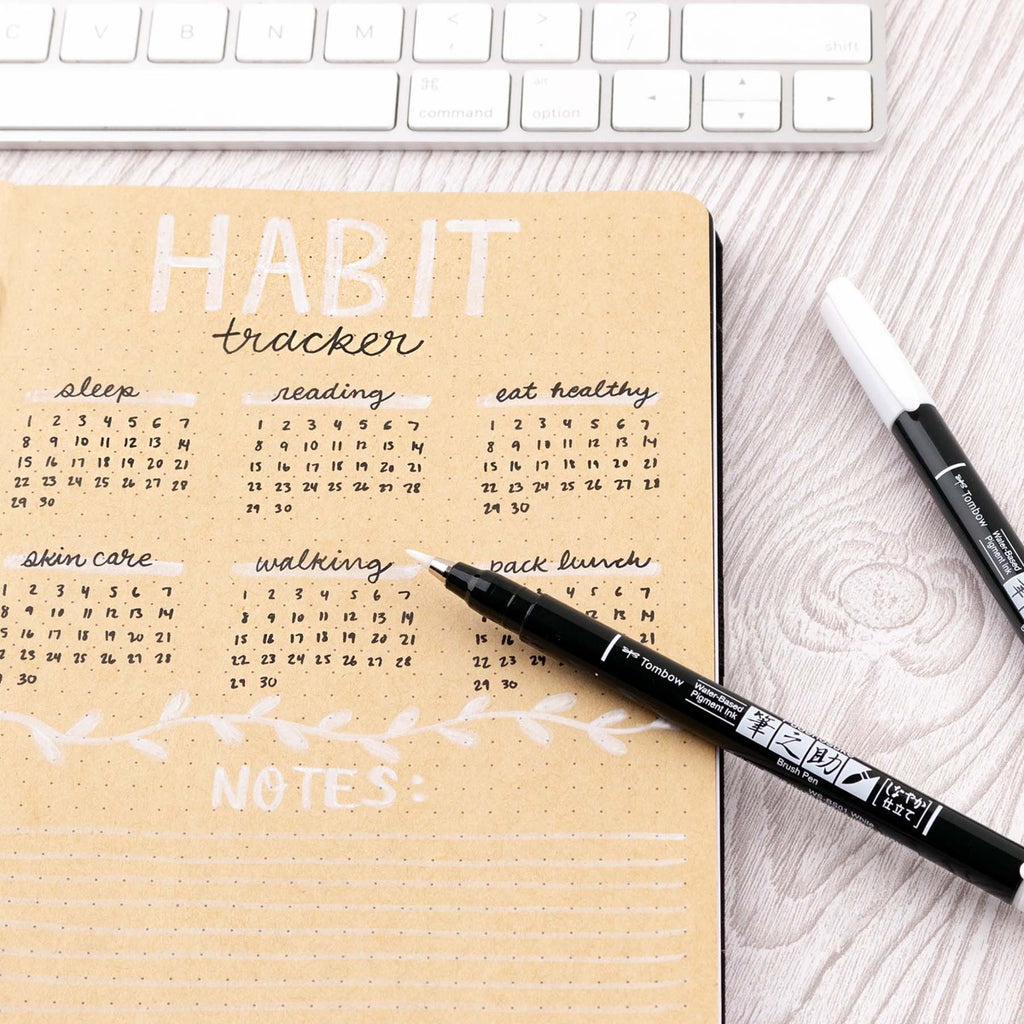 C V B N M < , > . ? / shift
⌘ command alt option ◄ ▲ ▼ ►
HABIT
tracker
sleep
1 2 3 4 5 6 7
8 9 10 11 12 13 14
15 16 17 18 19 20 21
22 23 24 25 26 27 28
29 30
reading
1 2 3 4 5 6 7
8 9 10 11 12 13 14
15 16 17 18 19 20 21
22 23 24 25 26 27 28
29 30
eat healthy
1 2 3 4 5 6 7
8 9 10 11 12 13 14
15 16 17 18 19 20 21
22 23 24 25 26 27 28
29 30
skin care
1 2 3 4 5 6 7
8 9 10 11 12 13 14
5 16 17 18 19 20 21
2 23 24 25 26 27 28
9 30
walking
1 2 3 4 5 6 7
8 9 10 11 12 13 14
15 16 17 18 19 20 21
22 23 24 25 26 27 28
29 30
pack lunch
3 4 5 6 7
12 13 14
15 16 21
22 23 24
29 30
NOTES:
Tombow
Water-Based
Pigment Ink
筆之助
Brush Pen
しなやか
仕立て
WS-BS01 White
Tombow
Water-Based
Pigment Ink